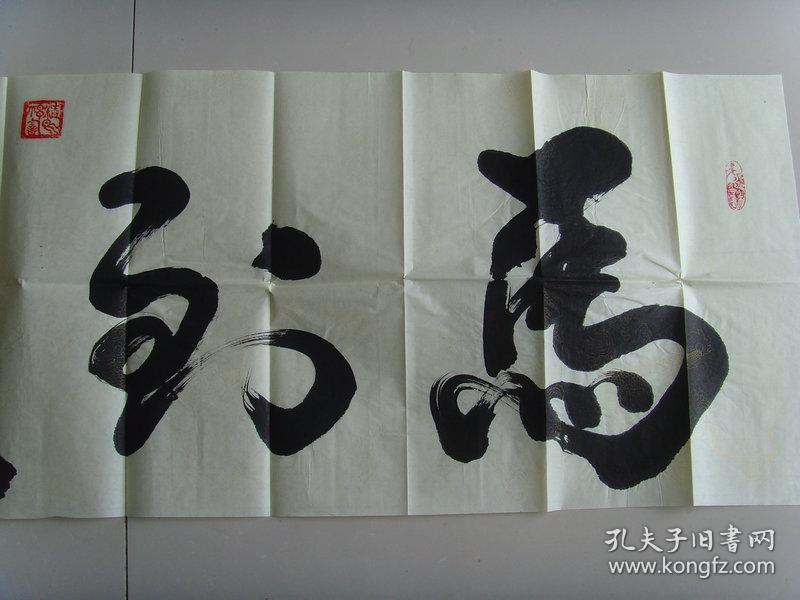 馬到
孔夫子旧书网
www.kongfz.com